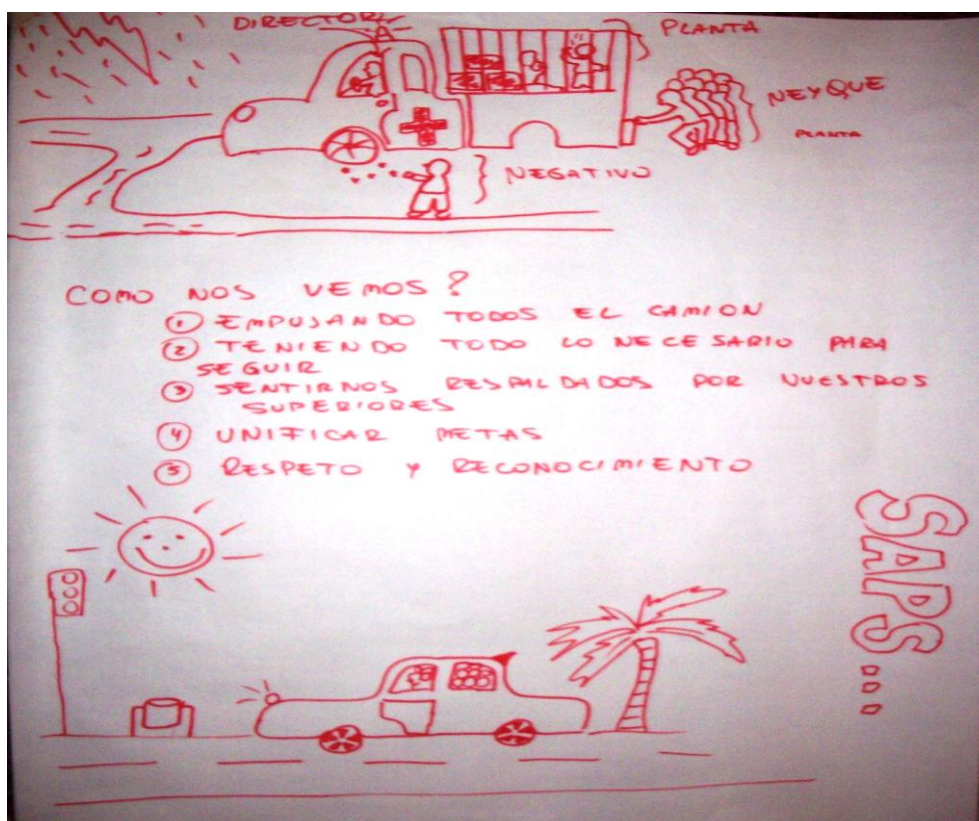 DIRECTOR
PLANTA
NEYQUE
PLANTA
NEGATIVO
COMO NOS VEMOS?
① EMPUJANDO TODOS EL CAMION
② TENIENDO TODO LO NECESARIO PARA
SEGUIR
③ SENTIRNOS RESPALDADOS POR NUESTROS
SUPERIORES
④ UNIFICAR METAS
⑤ RESPETO Y RECONOCIMIENTO
SAPS...